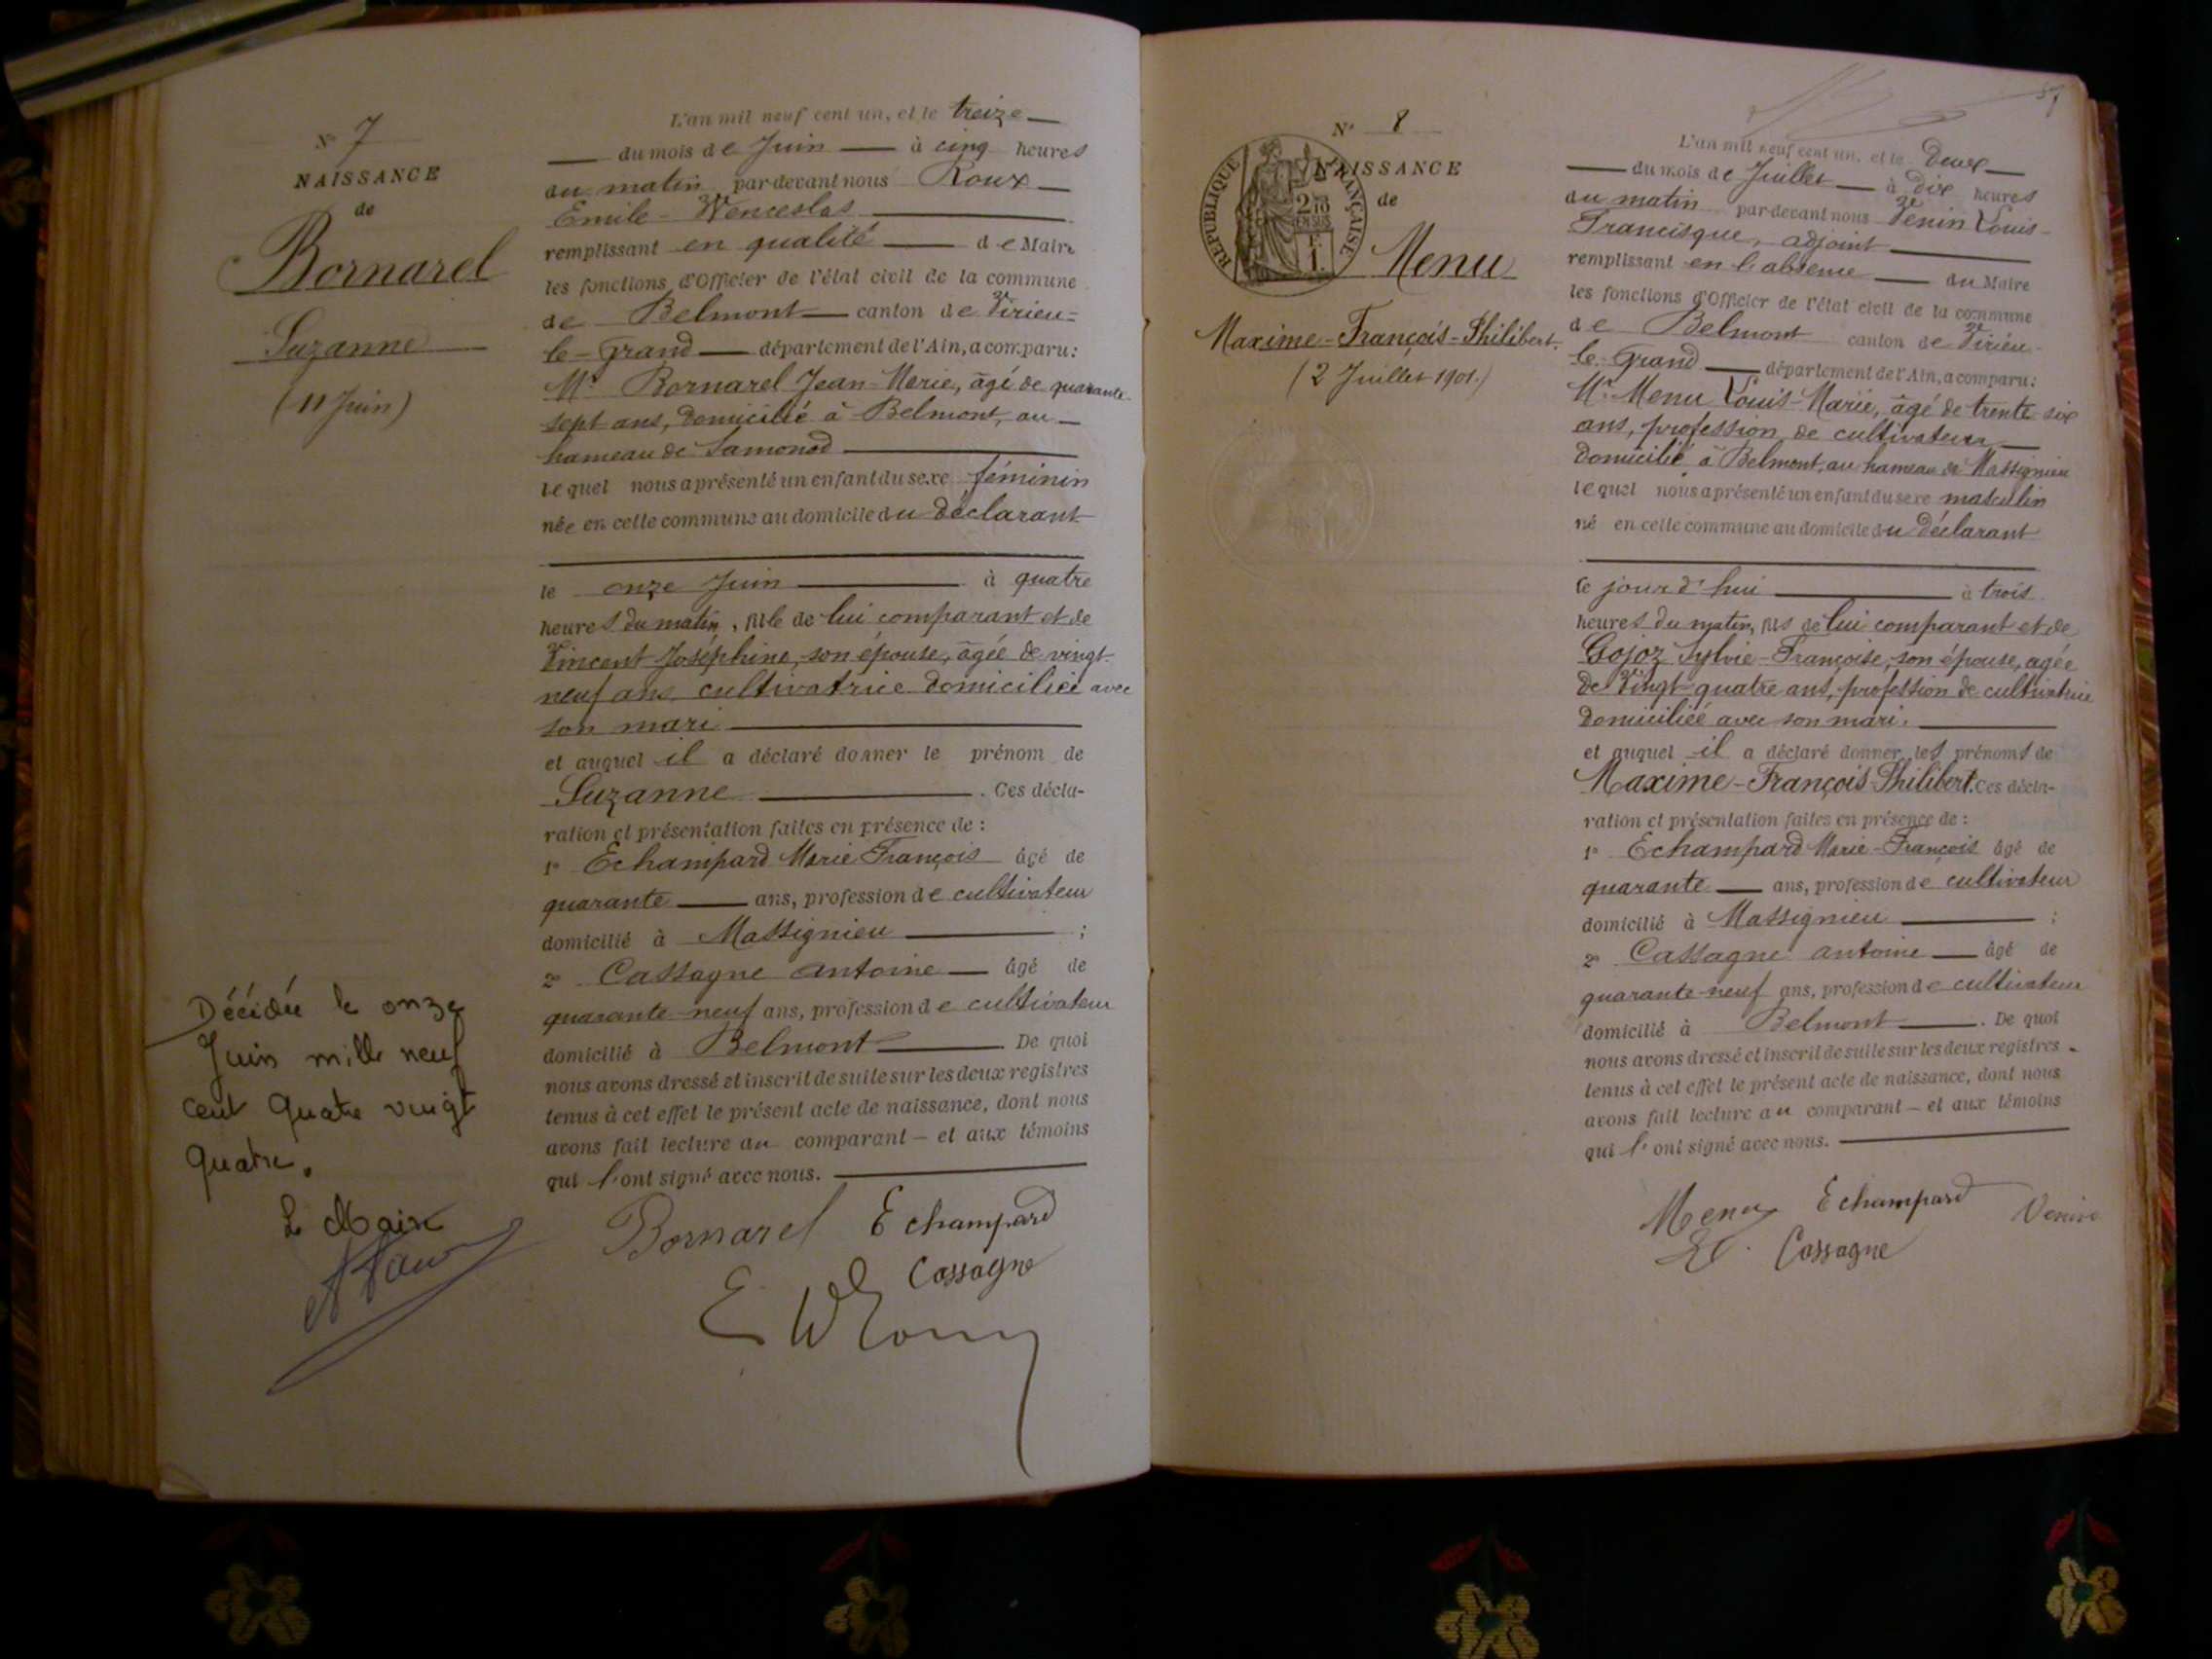 N° 7
NAISSANCE
de
Bornarel
Suzanne
(11 Juin)
L'an mil neuf cent un, et le treize
du mois de Juin à cinq heures
du matin par-devant nous Roux
Emile-Wenceslas
remplissant en qualité de Maire
les fonctions d'Officier de l'état civil de la commune
de Belmont canton de Virieu=
le-Grand département de l'Ain, a comparu:
Mr Bornarel Jean-Marie, âgé de quarante-
sept ans, domicilié à Belmont, au
hameau de Samonod
lequel nous a présenté un enfant du sexe féminin
née en cette commune au domicile du déclarant
le onze Juin à quatre
heures du matin, fille de lui comparant et de
Vincent Joséphine, son épouse, âgée de vingt-
neuf ans cultivatrice domiciliée avec
son mari
et auquel il a déclaré donner le prénom de
Suzanne. Ces décla-
ration et présentation faites en présence de :
1° Echampard Marie François âgé de
quarante ans, profession de cultivateur
domicilié à Massignieu ;
2° Cassagne Antoine âgé de
quarante-neuf ans, profession de cultivateur
domicilié à Belmont. De quoi
nous avons dressé et inscrit de suite sur les deux registres
tenus à cet effet le présent acte de naissance, dont nous
avons fait lecture au comparant – et aux témoins
qui l'ont signé avec nous.
Bornarel Echampard
Cassagne
E W Roux
Décédée le onze
Juin mille neuf
cent quatre vingt
quatre.
Le Maire
N° 8
NAISSANCE
de
REPUBLIQUE FRANÇAISE
Menu
Maxime-François-Philibert.
(2 Juillet 1901.)
57
L'an mil neuf cent un, et le Deux
du mois de Juillet à Dix heures
du matin par-devant nous Venin Louis-
Francisque, adjoint
remplissant en l'absence du Maire
les fonctions d'Officier de l'état civil de la commune
de Belmont canton de Virieu-
le-Grand département de l'Ain, a comparu:
Mr Menu Louis-Marie, âgé de trente-six
ans, profession de cultivateur
domicilié à Belmont, au hameau de Massignieu
lequel nous a présenté un enfant du sexe masculin
né en cette commune au domicile du déclarant
ce jour d'hui à trois
heures du matin, fils de lui comparant et de
Gojoz Sylvie-Françoise, son épouse, âgée
de Vingt-quatre ans, profession de cultivatrice
domiciliée avec son mari.
et auquel il a déclaré donner les prénoms de
Maxime-François-Philibert. Ces décla-
ration et présentation faites en présence de :
1° Echampard Marie-François âgé de
quarante ans, profession de cultivateur
domicilié à Massignieu ;
2° Cassagne Antoine âgé de
quarante-neuf ans, profession de cultivateur
domicilié à Belmont. De quoi
nous avons dressé et inscrit de suite sur les deux registres
tenus à cet effet le présent acte de naissance, dont nous
avons fait lecture au comparant – et aux témoins
qui l'ont signé avec nous.
Menu Echampard
Cassagne